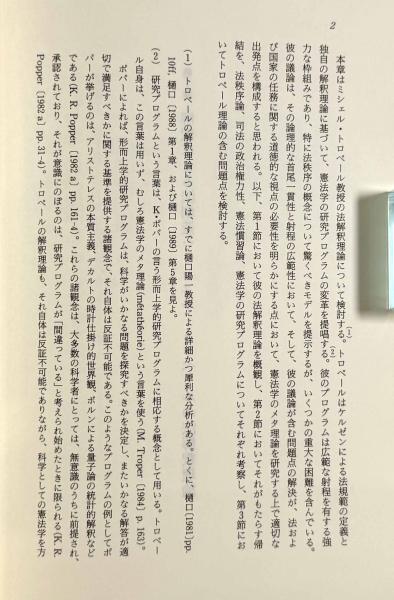 2
本章はミシェル・トロペール教授の法解釈理論について検討する。(1)トロペールはケルゼンによる法規範の定義と
独自の解釈理論に基づいて、憲法学の研究プログラムの変革を提唱する。(2)彼のプログラムは広範な射程を有する強
力な枠組みであり、特に法秩序の概念について驚くべきモデルを提示するが、いくつかの重大な困難を含んでいる。
彼の議論は、その論理的な首尾一貫性と射程の広範性において、そして、彼の議論が含む問題点の解決が、法およ
び国家の任務に関する道徳的な視点の必要性を明らかにする点において、憲法学のメタ理論を研究する上で適切な
出発点を構成すると思われる。以下、第1節において彼の法解釈理論を概観し、第2節においてそれがもたらす帰
結を、法秩序論、司法の政治権力性、憲法慣習論、憲法学の研究プログラムについてそれぞれ考察し、第3節にお
いてトロペール理論の含む問題点を検討する。
(1) トロペールの解釈理論については、すでに樋口陽一教授による詳細かつ犀利な分析がある。とくに、樋口(1981)pp.
10ff. 樋口(1968)第1章、および樋口(1989)第5章を見よ。
(2) 研究プログラムという言葉は、K・ポパーの言う形而上学的研究プログラムに相応する概念として用いる。トロペー
ル自身は、この言葉は用いず、むしろ憲法学のメタ理論(métathéorie)という言葉を使う(M. Troper (1984) p. 163)。
ポパーによれば、形而上学的研究プログラムは、科学がいかなる問題を探究すべきかを決定し、またいかなる解答が適
切で満足すべきかに関する基準を提供する諸観念で、それ自体は反証不可能である。このようなプログラムの例としてポ
パーが挙げるのは、アリストテレスの本質主義、デカルトの時計仕掛け的世界観、ボルンによる量子論の統計的解釈など
である(K. R. Popper (1982 a) pp. 161-4)。これらの諸観念は、大多数の科学者にとっては、無意識のうちに前提され、
承認されており、それが意識にのぼるのは、研究プログラムが「間違っている」と考えられ始めたときに限られる(K. R.
Popper (1982 a) pp. 31-4)。トロペールの解釈理論も、それ自体は反証不可能でありながら、科学としての憲法学を方